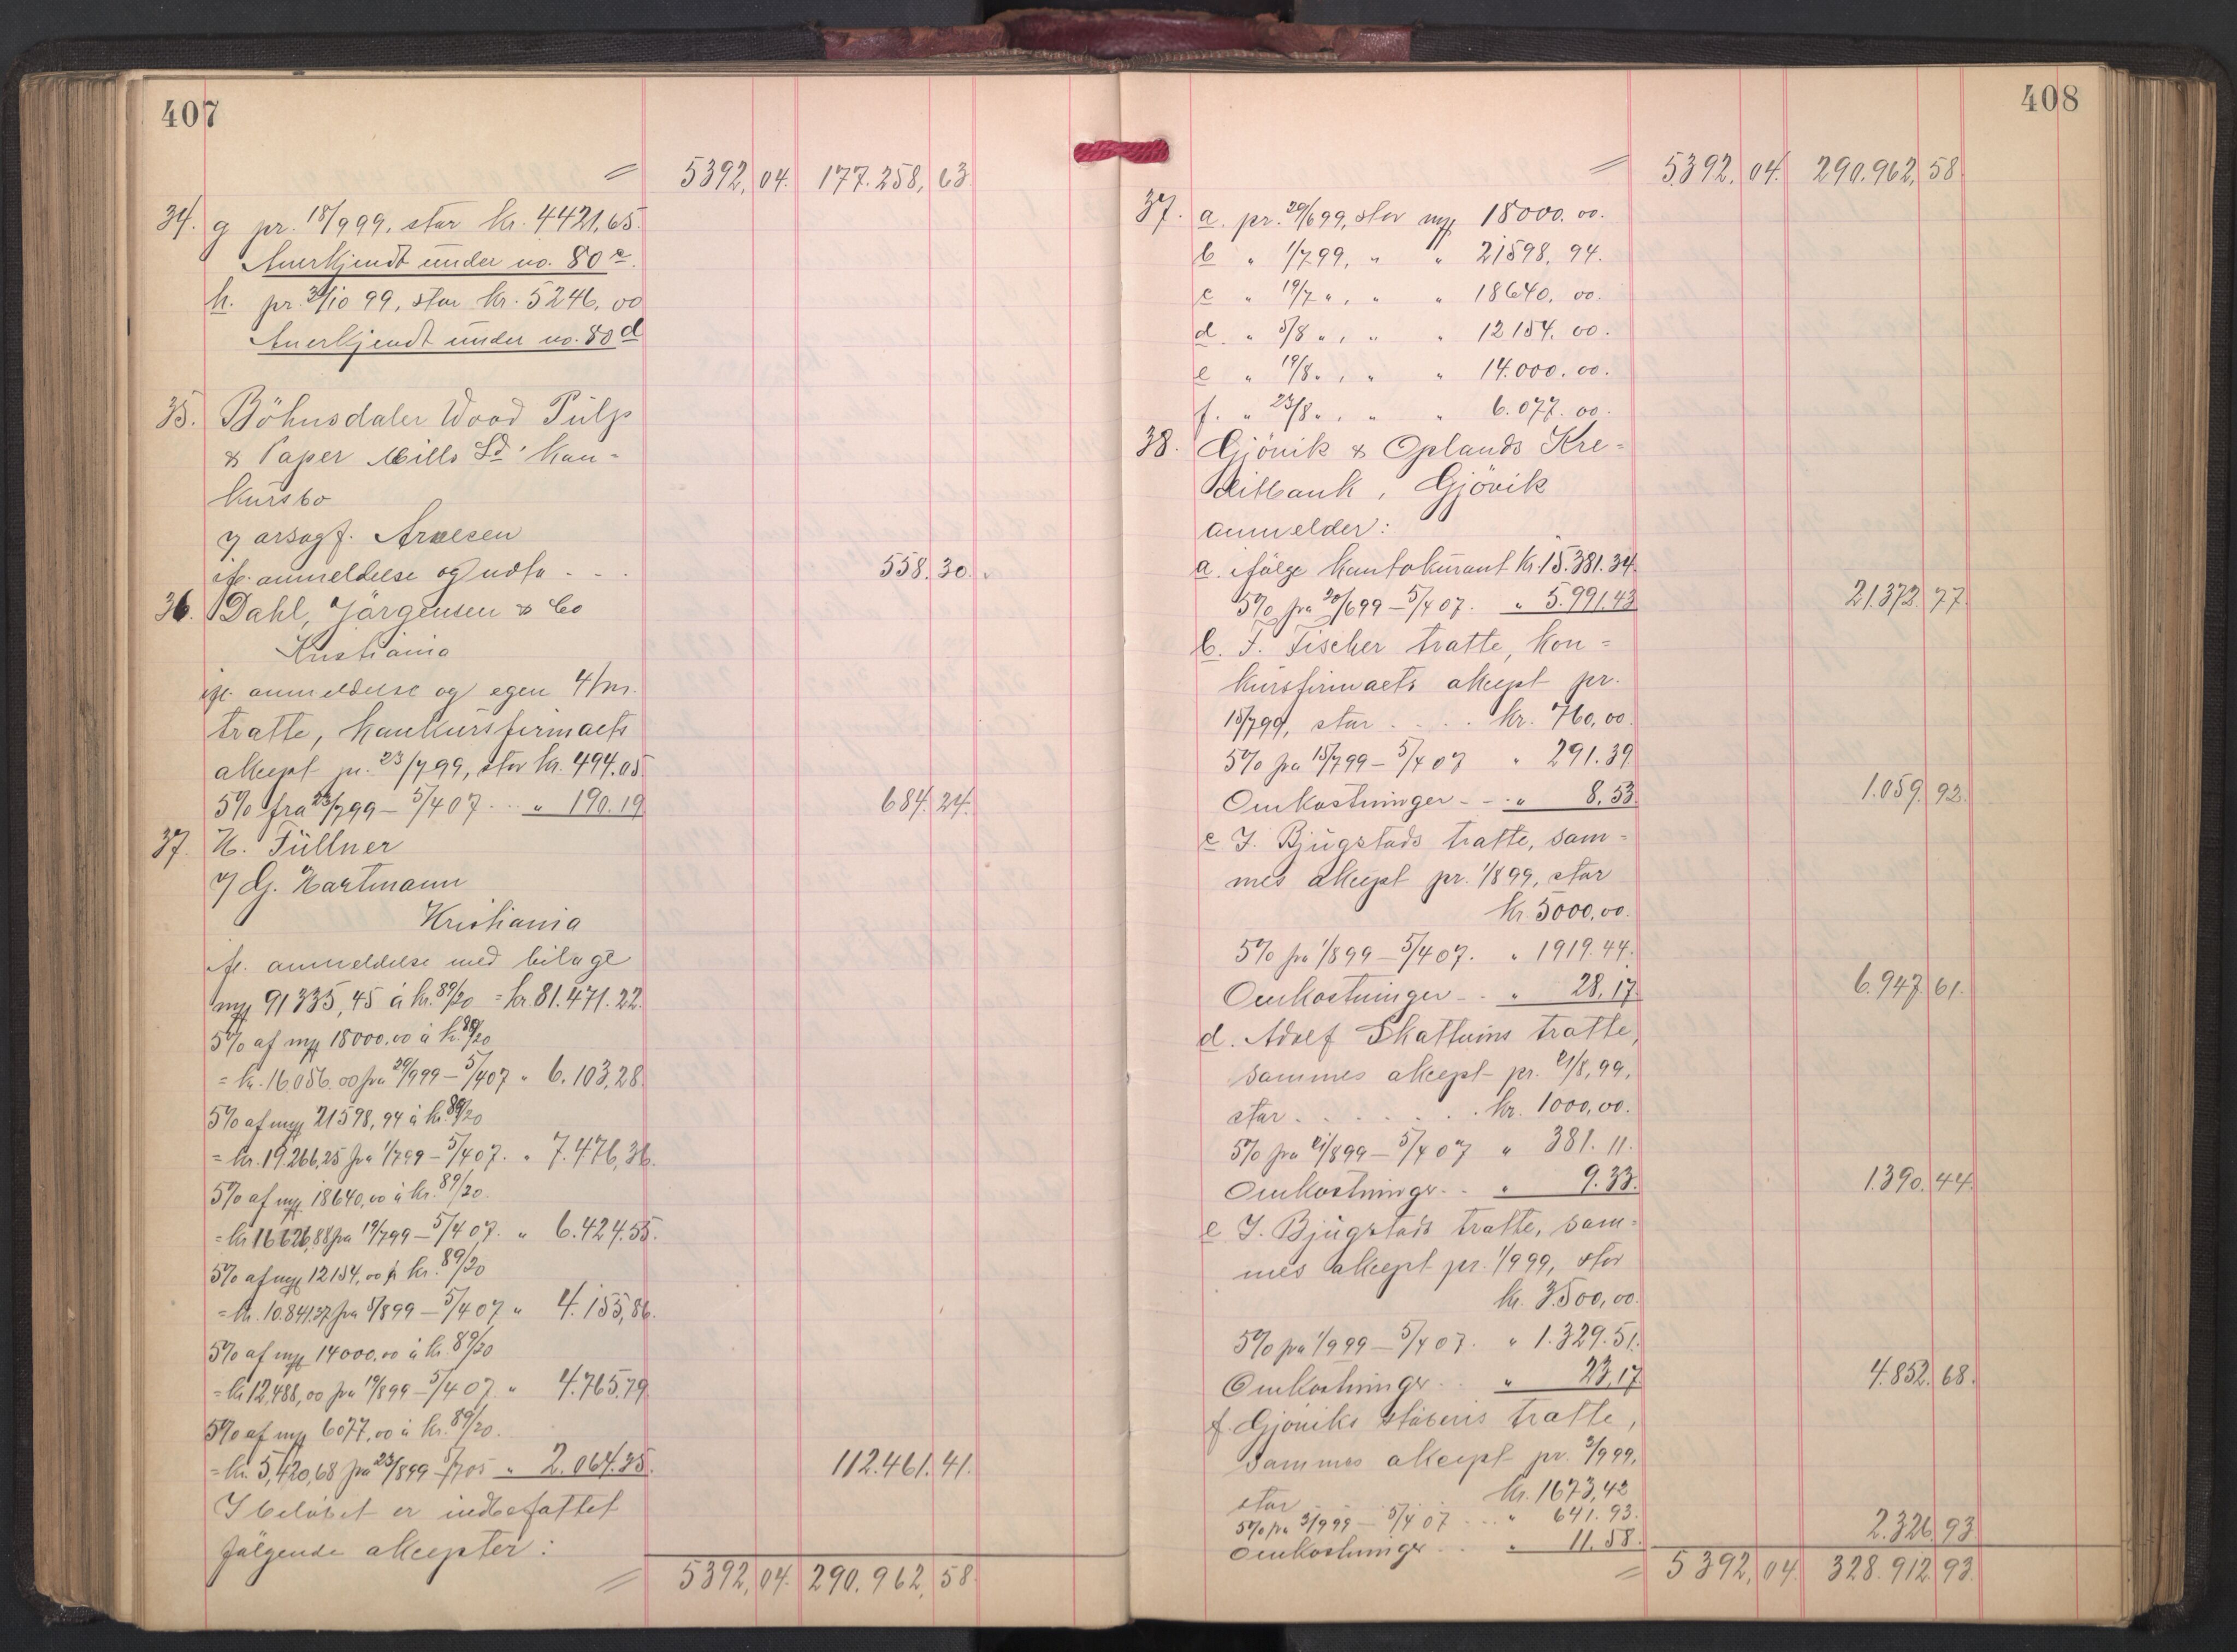 407
= 5392,04. 177.258,63.
34. g pr. 18/9 99, stor kr. 4421,65.
Anerkjendt under no. 80 c.
h. pr. 31/10 99, stor kr. 5246,00
Anerkjendt under no. 80 d
35. Böhnsdalen Wood Pulp
& Paper Mills Ld' kon-
kursbo
v/ orsagf. Arnesen
if. anmeldelse og udto - - . 558.30.
36. Dahl, Jörgensen & Co
Kristiania
if. anmeldelse og egen 4/m.
tratte, konkursfirmaets
akcept pr. 23/7 99, stor kr. 494.05.
5% fra 23/7 99 – 5/4 07 . . . " 190.19 684.24.
37. H. Füllner
v/ G. Hartmann
Kristiania
if. anmeldelse med bilage
mk 91335,45 à kr. 89/20 = kr. 81.471.22.
5% af mk 18000.00 à kr. 89/20
= kr. 16.056.00 fra 29/9 99 – 5/4 07 " 6.103,28.
5% af mk 21598,94 à kr. 89/20
= kr. 19.266,25 fra 1/7 99 – 5/4 07. " 7.476,36.
5% af mk 18640,00 à kr. 89/20.
= kr 16626,88 fra 19/7 99 – 5/4 07. " 6.424.55.
5% af mk 12154,00 à kr. 89/20
= kr. 10.841.37 fra 5/8 99 – 5/4 07 " 4.155,86.
5% af mk 14000.00 à kr. 89/20
= kr 12,488,00 fra 19/8 99 – 5/4 07 " 4.765.79
5% af mk 6077.00 à kr. 89/20.
= kr. 5,420,68 fra 23/8 99 – 5/7 05 " 2.064.35. 112.461.41.
I belöbet er indbefattet
fölgende akcepter:
= 5392,04. 290.962,58
408
= 5392,04. 290.962,58.
37. a. pr. 29/6 99, stor mk 18000.00.
b " 1/7 99, " " 21598,94.
c " 19/7 ", " " 18640,00.
d. " 5/8 ", " " 12154.00.
e " 19/8 ", " " 14.000.00.
f. " 23/8 ", " " 6.077.00.
38. Gjövik & Oplands Kre-
ditbank, Gjövik
anmelder:
a. ifölge kontokurant kr. 15.381.34.
5% fra 20/6 99 – 5/4 07. " 5.991.43 21.372.77.
b. F. Fischer tratte, kon-
kursfirmaets akcept pr.
15/7 99, stor . . . . kr. 760,00.
5% fra 15/7 99 – 5/4 07 " 291.39
Omkostninger - - . " 8,53. 1.059.92.
c J. Bjugstads tratte, sam-
mes akcept pr. 1/8 99, stor
kr. 5000,00.
5% fra 1/8 99 – 5/4 07. " 1919.44.
Omkostninger - . " 28,17. 6.947.61.
d. Adolf Skattums tratte,
sammes akcept pr. 21/8,99,
stor . . . . . . . kr. 1000,00.
5% fra 21/8 99 – 5/4 07 " 381.11.
Omkostninger . . " 9.33. 1.390.44.
e J. Bjugstads tratte, sam-
mes akcept pr. 1/9 99, stor
kr. 3500,00.
5% fra 1/9 99 – 5/4 07. " 1.329.51.
Omkostninger . . " 23,17 4.852.68.
f. Gjöviks stöberis tratte,
sammes akcept pr. 3/9 99,
stor kr. 1673,42
5% fra 3/9 99 – 5/4 07 . . . " 641.93.
Omkostninger . . " 11.58. 2.326.93
= 5392,04. 328.912.93.